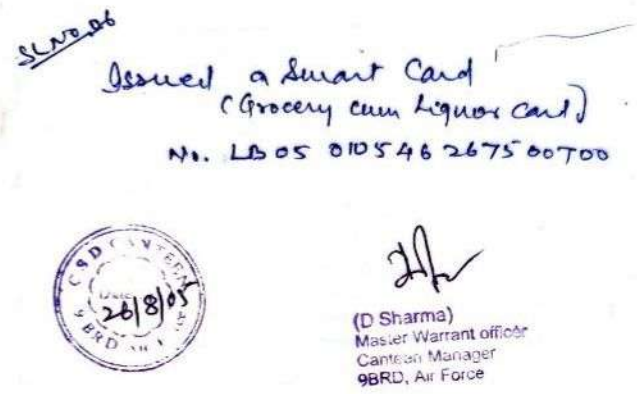 SL NO. 26
Issued a Smart Card
(Grocery cum Liquor Card)
No. LB05 0105462675 00T00
CSD CANTEEN
DATE
26/8/05
9 BRD
(D Sharma)
Master Warrant officer
Canteen Manager
9BRD, Air Force